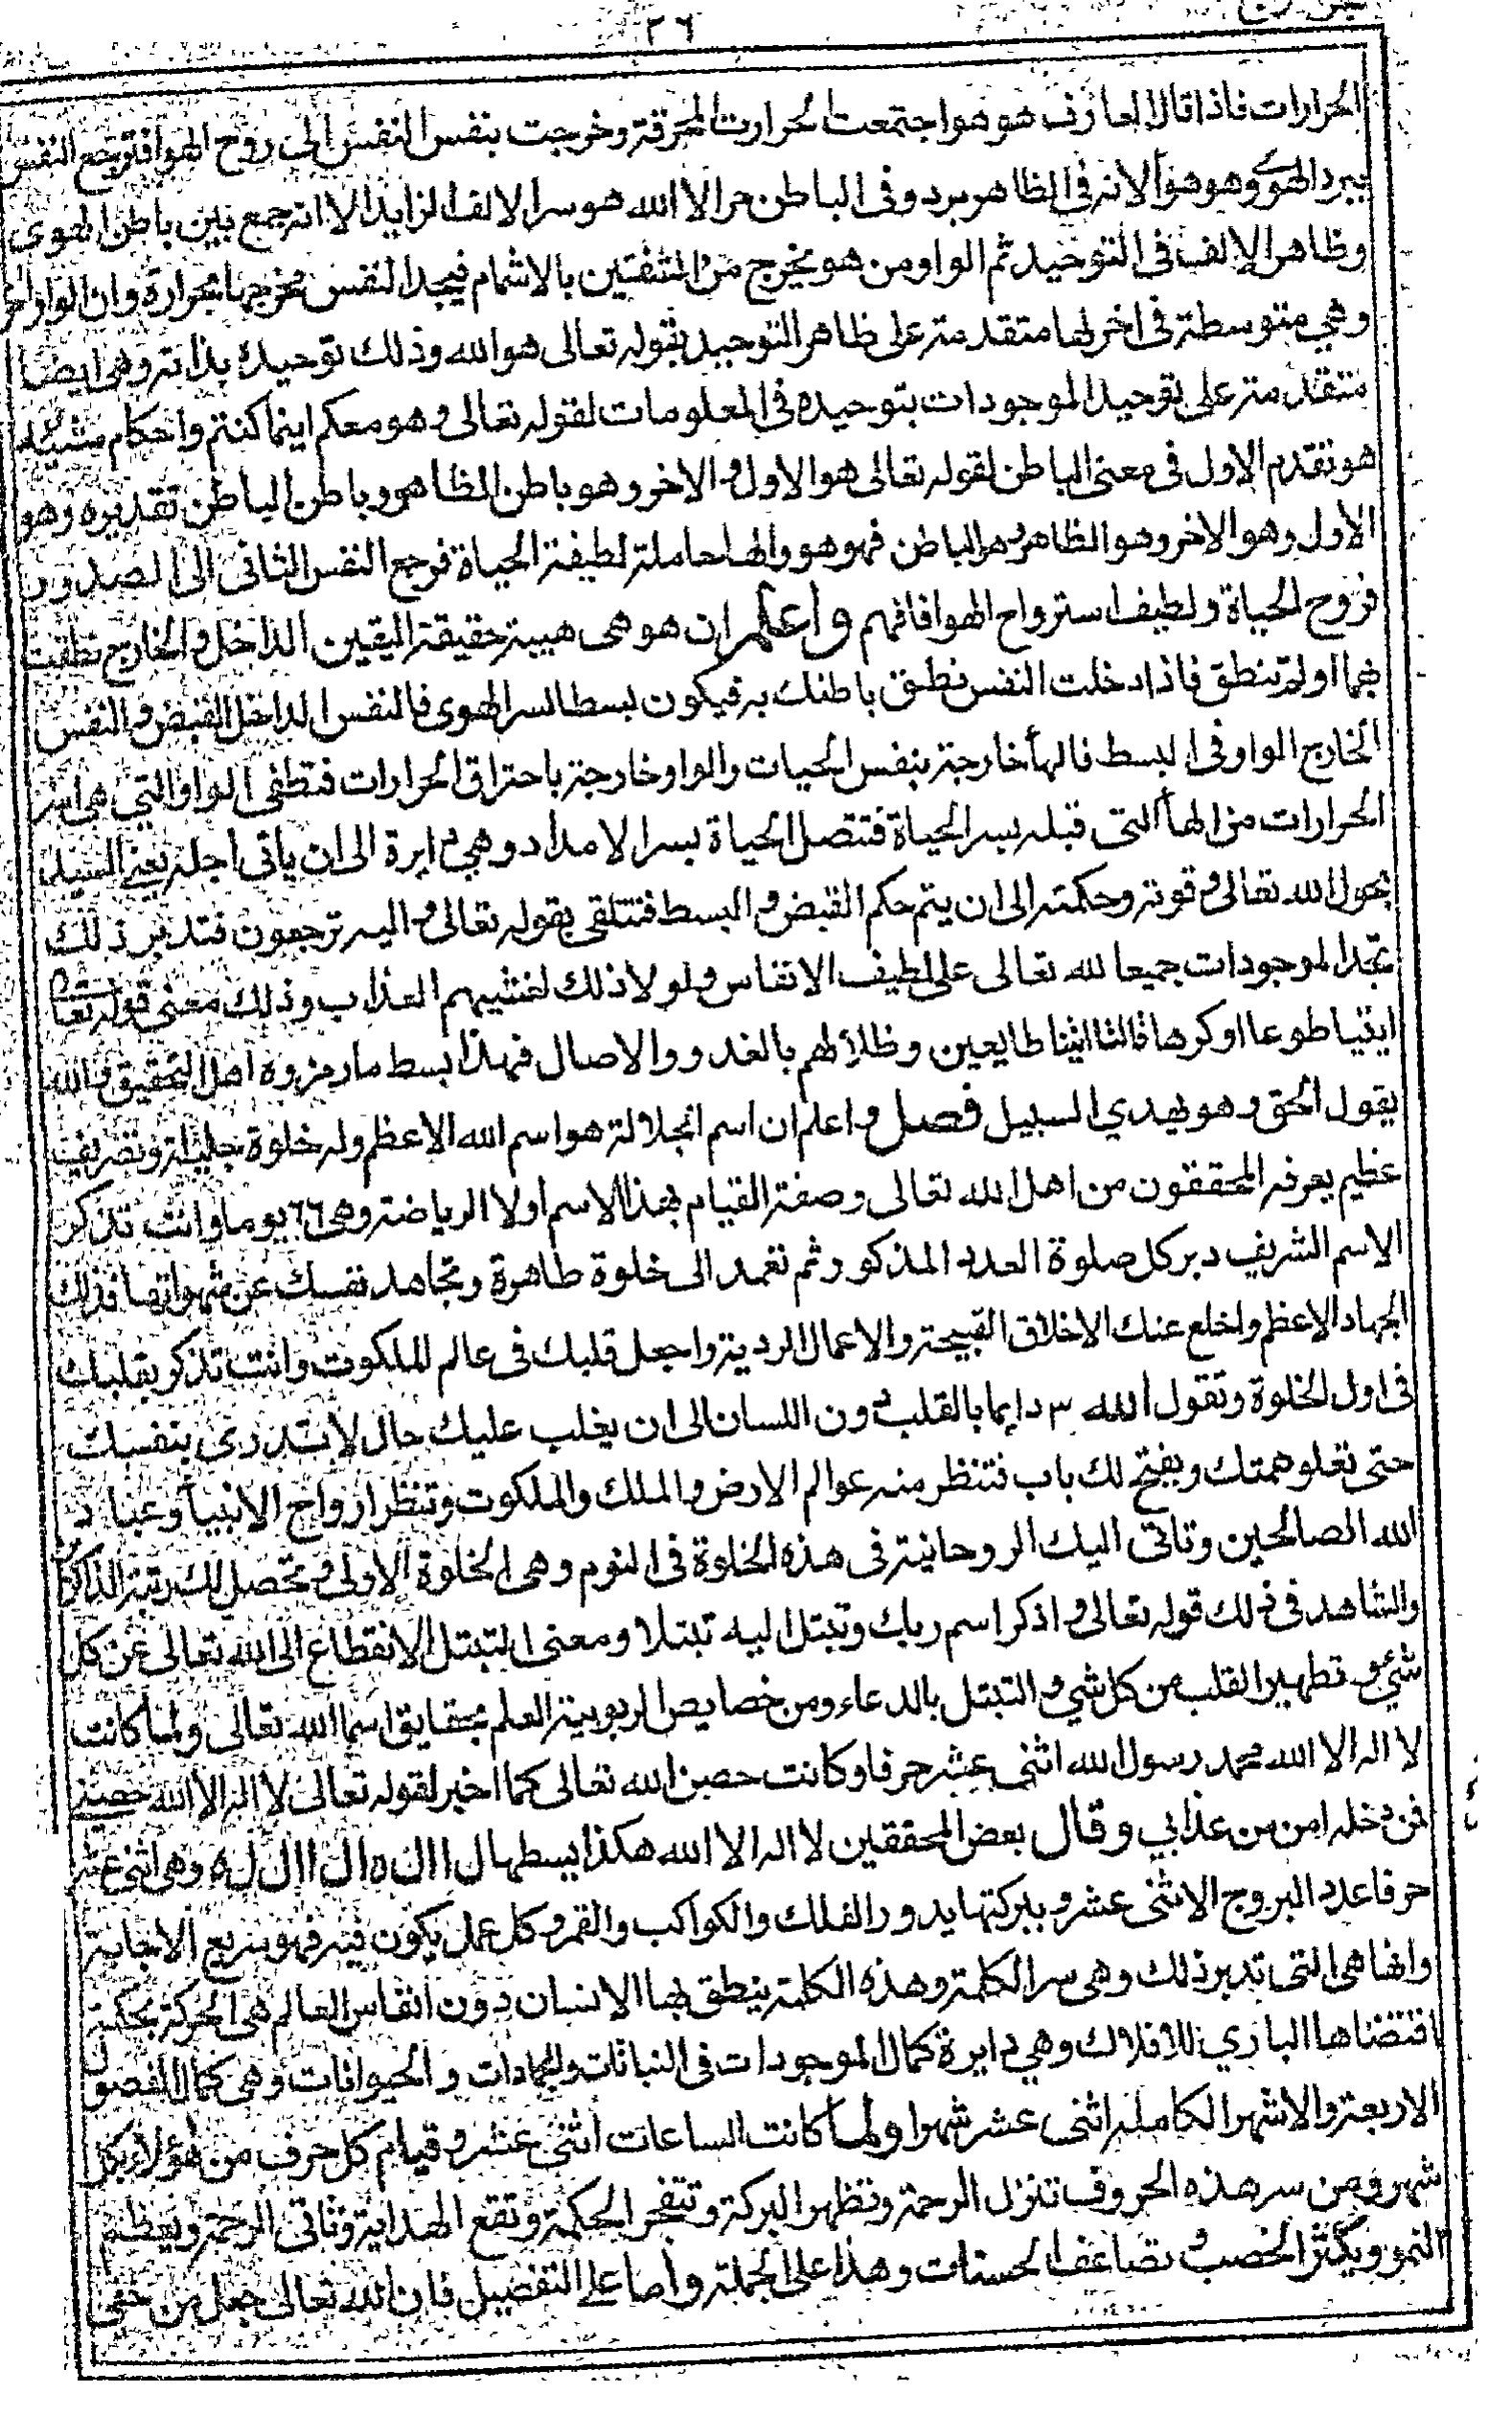 ٢٦
الحرارات فاذا قال العارف هو هو اجتمعت الحرارت المحرقة وخرجت بنفس النفس الى روح الهوا فترجع النفس
ببرد الهوى وهو هوأ لانه فى الظاهر برد وفى الباطن حر الا الله هو سر الالف الزايد الا انه جمع بين باطن الهوى
وظاهر الالف فى التوحيد ثم الواو من هو يخرج من الشفتين بالاشمام فيجد النفس مخرجها بحرارة وان الواو
وهي متوسطة فى اخر لها متقدمة على ظاهر التوحيد بقوله تعالى هو الله وذلك توحيده بذاته وهى ايضا
متقدمة على توحيد الموجودات بتوحيده فى المعلومات لقوله تعالى وهو معكم اينما كنتم واحكام
هو تقدم الاول فى معنى الباطن لقوله تعالى هو الاول والاخر وهو باطن الظاهر وباطن الباطن تقديره وهو
الاول وهو الاخر وهو الظاهر وهو الباطن فهو هو والها حاملة لطيفة الحياة فرجع النفس الثانى الى الصدور
فروح الحياة ولطيف استرواح الهوا فافهم واعلم ان هو هى هيبة حقيقة اليقين الداخل والخارج نطقت
بهما او لم تنطق فاذا دخلت النفس نطق باطنك به فيكون بسطا لسر الهوى فالنفس الداخل القبض والنفس
الخارج الواو فى البسط فالهأ خارجة بنفس الحيات والواو خارجة باحتراق الحرارات فتطفى الواو التي هى
الحرارات من الهأ التى قبله بسر الحياة فتتصل الحياة بسر الامداد وهي دايرة الى ان ياتى اجله يعني السيد
بحول الله تعالى وقوته وحكمته الى ان يتم حكم القبض والبسط فتتلقى بقوله تعالى واليه ترجعون فتدبر ذلك
تجد الموجودات جميعا لله تعالى على لطيف الانفاس ولولا ذلك لغشيهم العذاب وذلك معنى قوله تعا
ايتيا طوعا او كرها قالتا اتينا طايعين وظلالهم بالغدو والاصال فهذا بسط ما رمزوه اهل التحقيق والله
يقول الحق وهو يهدي السبيل فصل واعلم ان اسم الجلالة هو اسم الله الاعظم وله خلوة جليلة وتصريف
عظيم يعرفه المحققون من اهل الله تعالى وصفة القيام بهذا الاسم اولا الرياضة وهى ٦٦ يوما وانت تذكر
الاسم الشريف دبر كل صلوة العدد المذكور ثم تعمد الى خلوة طاهرة وتجاهد نفسك عن شهواتها فذلك
الجهاد الاعظم واخلع عنك الاخلاق القبيحة والاعمال الردية واجعل قلبك فى عالم الملكوت وانت تذكر بقلبك
فى اول الخلوة وتقول الله ٣ دايما بالقلب دون اللسان الى ان يغلب عليك حال لا تدرى بنفسك
حتى تعلو همتك ويفتح لك باب فتنظر منه عوالم الارض والملك والملكوت وتنظر ارواح الانبيأ وعباد
الله الصالحين وتاتى اليك الروحانية فى هذه الخلوة فى النوم وهى الخلوة الاولى وتحصل لك رتبة الذاكر
والشاهد فى ذلك قوله تعالى واذكر اسم ربك وتبتل اليه تبتلا ومعنى التبتل الانقطاع الى الله تعالى عن كل
شئ وتطهير القلب من كل شي والتبتل بالدعاء ومن خصايص الربوبية العلم بحقايق اسما الله تعالى ولما كانت
لا اله الا الله محمد رسول الله اثنى عشر حرفا وكانت حصن الله تعالى كما اخبر لقوله تعالى لا اله الا الله حصنى
فمن دخله امن من عذابي وقال بعض المحققين لا اله الا الله هكذا يبسطها ل ا ا ل ه ا ل ا ا ل ل ه وهى اثنى عشر
حرفا عدد البروج الاثنى عشر وببركتها يدور الفلك والكواكب والقمر وكل عمل يكون فيه فهو سريع الاجابة
وانها هى التى تدبر ذلك وهى سر الكلمة وهذه الكلمة ينطق بها الانسان دون انفاس العالم هى الحركة بحكمة
اقتضاها الباري للافلاك وهي دايرة كمال الموجودات فى النباتات والجمادات والحيوانات وهى كمال الفصول
الاربعة والاشهر الكاملة اثنى عشر شهرا ولما كانت الساعات اثنى عشر وقيام كل حرف من هؤلاء بكل
شهر ومن سر هذه الحروف تنزل الرحمة وتظهر البركة وتتفجر الحكمة وتقع الهداية وتاتى الرحمة ويعظم
النمو ويكثر الخصب وتضاعف الحسنات وهذا على الجملة واما على التفصيل فان الله تعالى جعل من خفى